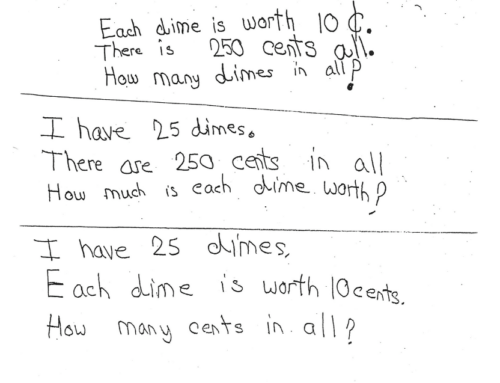 Each dime is worth 10 ¢.
There is 250 cents all.
How many dimes in all?
I have 25 dimes.
There are 250 cents in all
How much is each dime worth?
I have 25 dimes,
Each dime is worth 10 cents.
How many cents in all?